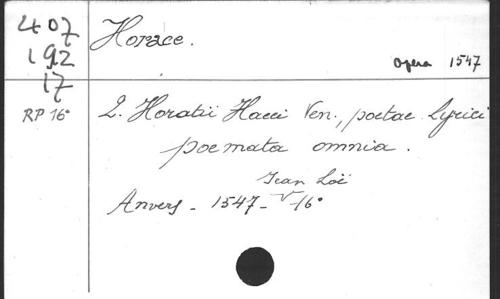 407
192
17
RP 16°
Horace.
Opera 1547
Q. Horatii Flacci Ven., poetae Lyrici
poemata omnia.
Jean Loë
Anvers - 1547 - 16°